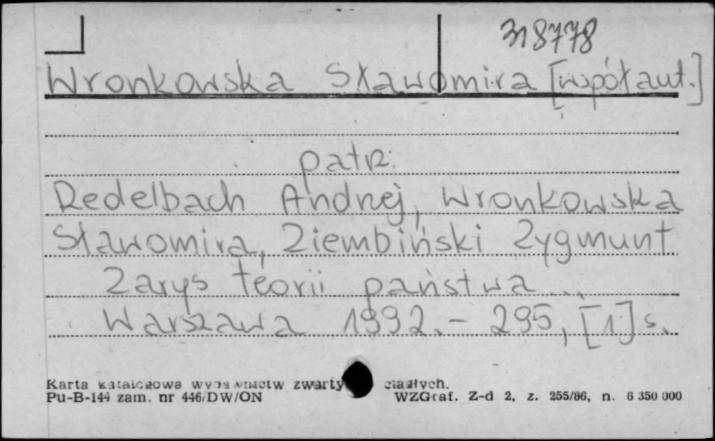 318778
Wronkowska Sławomira [współaut.]
patrz:
Redelbach Andrzej, Wronkowska
Sławomira, Ziembiński Zygmunt
Zarys teorii państwa...
Warszawa 1992. - 295, [1] s.
Karta katalogowa wydawnictw zwartych ciągłych.
Pu-B-144 zam. nr 446/DW/ON WZGraf. Z-d 2, z. 255/86, n. 6 350 000